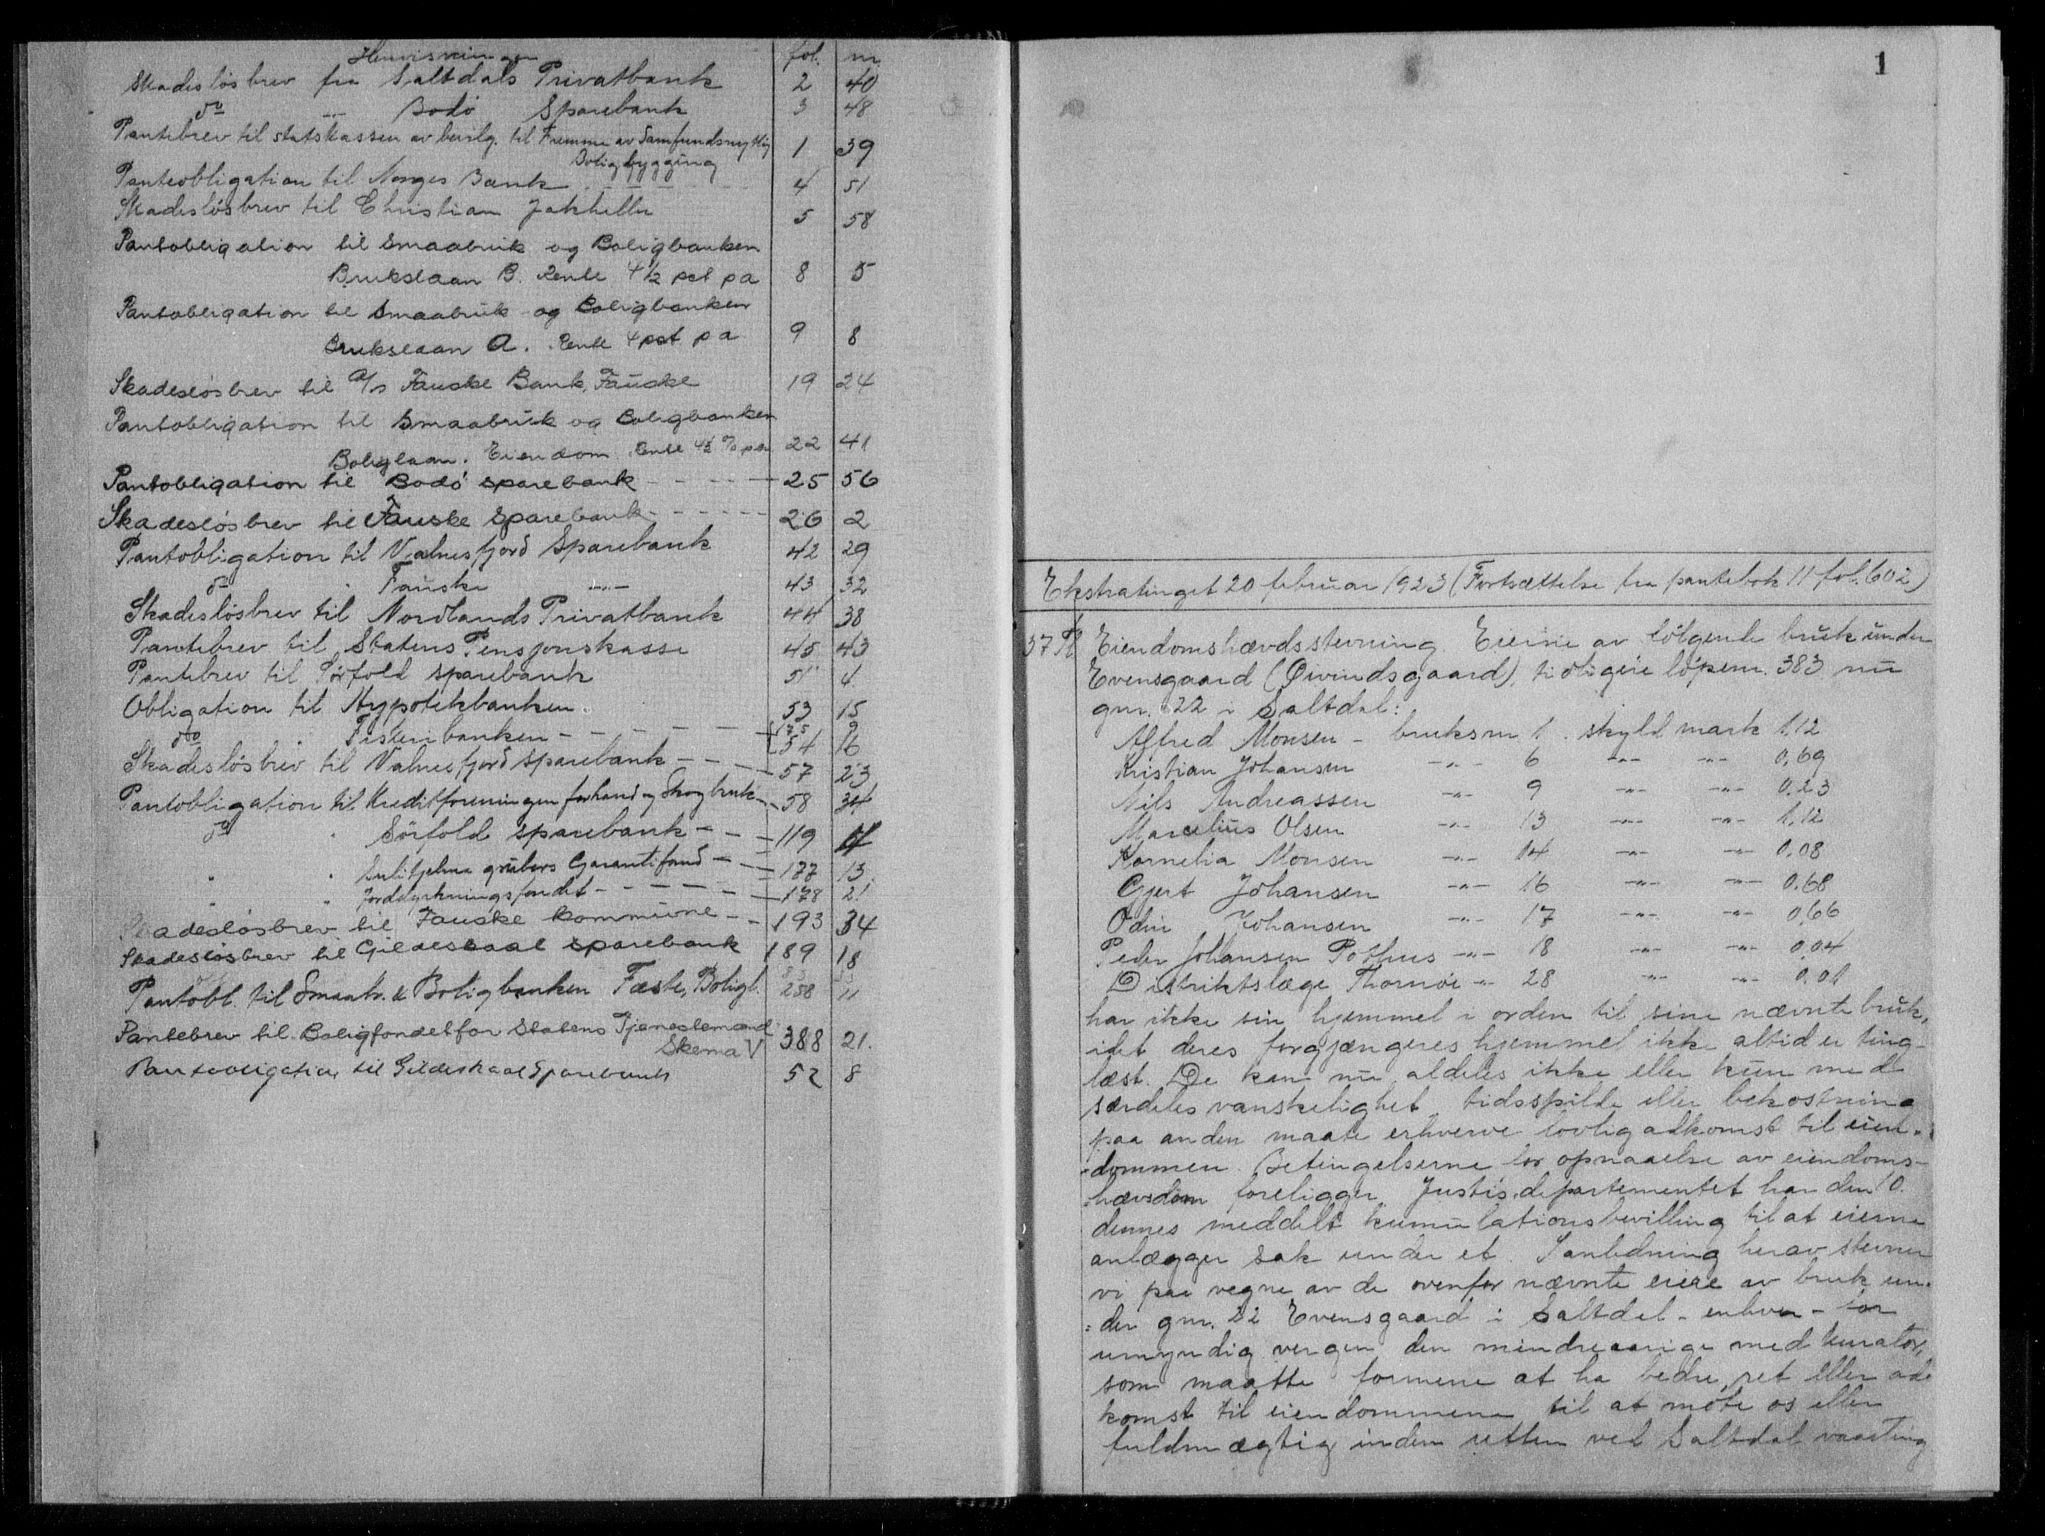 Henvisninger fol. nr.
Skadesløsbrev fra Saltdals Privatbank 2 40
do —"— Bodø Sparebank 3 48
Pantebrev til statskassen av bevilg. til Fremme av Samfundsnyttig
Boligbygging 1 39
Panteobligation til Norges Bank - - - - 4 51
Skadesløsbrev til Christian Jakhelln 5 58
Pantobligation til Smaabruk og Boligbanken
Brukslaan B. Rente 4½ pct pa 8 5
Pantobligation til Smaabruk og Boligbanken
Brukslaan A. Rente 4 pct pa 9 8
Skadesløsbrev til A/s Fauske Bank, Fauske 19 24
Pantobligation til Smaabruk og Boligbanken
Boliglaan. Eiendom Rente 4½ % pa 22 41
Pantobligation til Bodø sparebank - - - - 25 56
Skadesløsbrev til Fauske Sparebank - - - - 26 2
Pantobligation til Valnesfjord Sparebank 42 29
do " Fauske —"— 43 32
Skadesløsbrev til Nordlands Privatbank 44 38
Pantebrev til Statens Pensjonskasse 45 43
Pantebrev til Sørfold sparebank 51 4
Obligation til Hypotekbanken. 53 15
do " Fiskeribanken - - - - 54 16
Skadesløsbrev til Valnesfjord sparebank - - - 57 23
Pantobligation til Kreditforeningen for land og Skogbruk - 58 34
do " Sørfold sparebank - - - 119
" " Sulitjelma grubers Garantifond - - 177 13
" " Jorddyrkningsfondet - - - - 178 21
Skadesløsbrev til Fauske kommune - - 193 34
Skadesløsbrev til Gildeskaal sparebank 189 18
Pantobl. til Smaabr. & Boligbanken Fæste, Boligl. 258 11
Pantebrev til Boligfondet for Statens Tjenestemænd
Skema V 388 21.
Pantobligation til Gildeskaal Sparebank 52 8
1
Ekstratinget 20 februar 1923 (Fortsættelse fra pantebok 11 fol. 602)
37 Eiendomshævdsstevning. Eierne av følgende bruk under
Evensgaard (Øivindsgaard), tidligere løpenr. 383 nu
gnr. 22 i Saltdal:
Alfred Monsen - bruksnr 1. skyld mark 1,12
Kristian Johansen —"— 6 —"— —"— 0,69
Nils Andreassen —"— 9 —"— —"— 0,23
Marcelius Olsen —"— 13 —"— —"— 1,12
Kornelia Monsen —"— 14 —"— —"— 0,08
Gjert Johansen —"— 16 —"— —"— 0,68
Odin Johansen —"— 17 —"— —"— 0,66
Peder Johansen Pothus —"— 18 —"— —"— 0,04
Distriktslæge Thornøe —"— 28 —"— —"— 0,01
har ikke sin hjemmel i orden til sine nævnte bruk,
idet deres forgjængeres hjemmel ikke altid er ting-
læst. De kan nu aldeles ikke eller kun med
særdeles vanskelighet, tidsspilde eller bekostning
paa anden maate erhverve lovlig adkomst til eien-
dommen. Betingelserne for opnaaelse av eiendoms-
hævsdom foreligger. Justisdepartementet har den 10.
dennes meddelt kumulationsbevilling til at eierne
anlægger sak under et. I anledning herav stevner
vi paa vegne av de ovenfor nævnte eiere av bruk un-
der gnr. 22 Evensgaard i Saltdal - enhver - for
umyndig vergen den mindreaarige med kurator,
som maatte formene at ha bedre ret eller ad-
komst til eiendommene til at møte os eller
fuldmægtig inden retten ved Saltdal vaarting